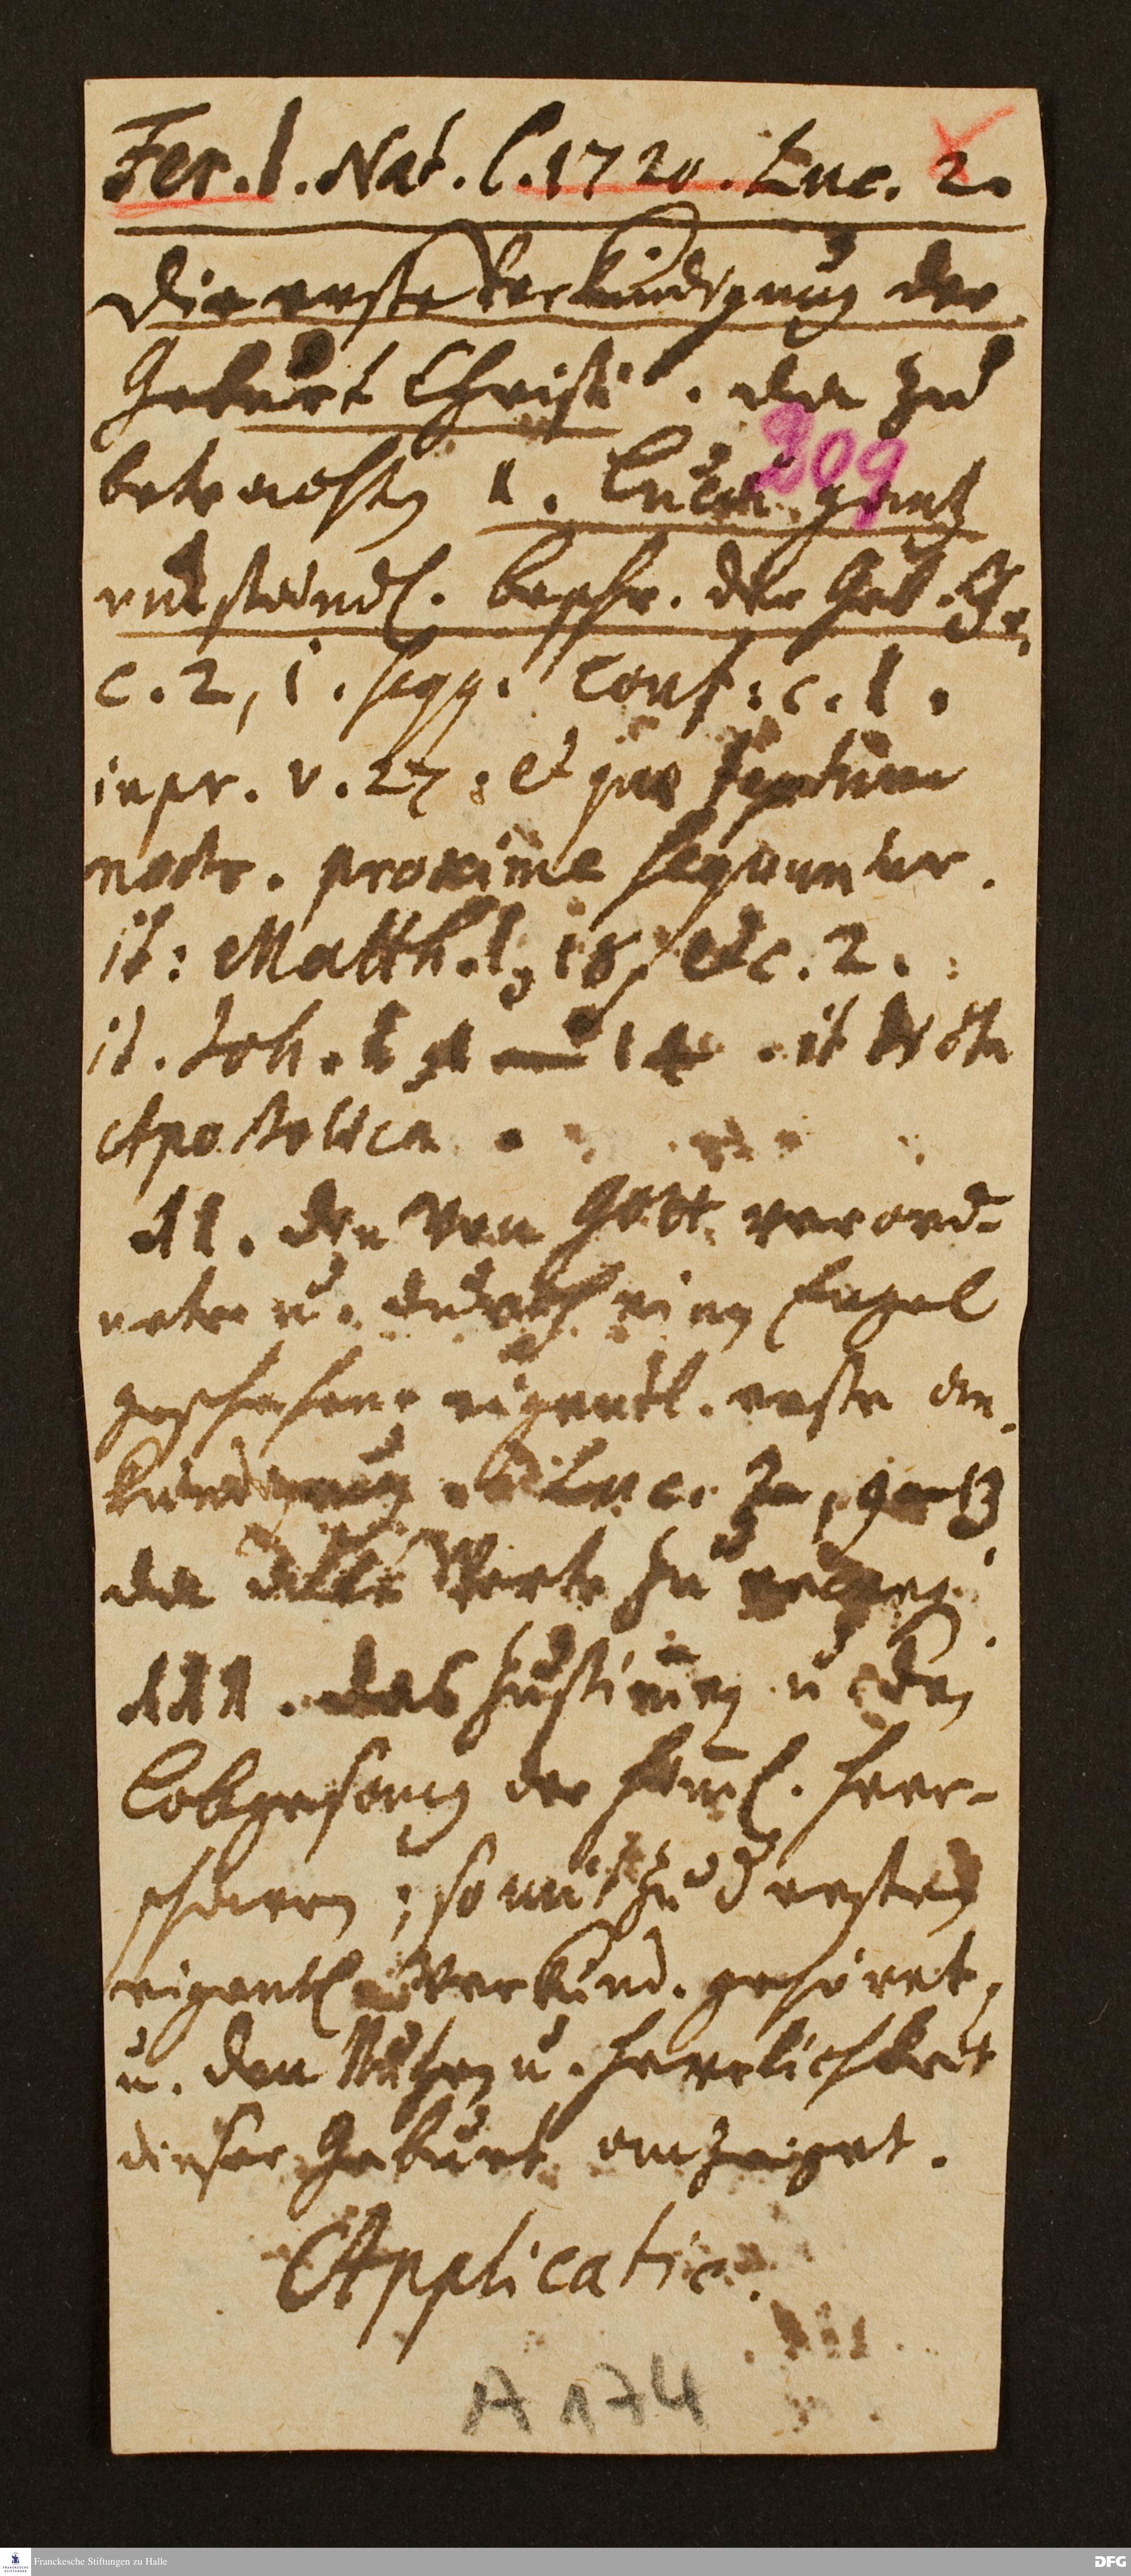 Fer. I. Nat. C. 1720. Luc. 2.
Die erste Verkündigung der
Geburt Christi. da zu
209
betrachten I. Lucä gantz
umständl. beschr. der Geb. Chr.
c. 2, 1. seqq. Conf: c. 1.
inpr. v. 27; et quæ textum
nostr. proxime sequuntur.
it: Matth. 1, 18. et c. 2.
it. Joh. 1, 1 — 14. it
Apostolica.
II. die von Gott verord-
nete u. durch einen Engel
geschehene eigentl. erste An-
kündigung. Luc. 2, 9-13.
da alle Worte zu
III. das zustimmen u den
Lobgesang der himml. Heer-
schaaren; so mit zu der ersten
eigentl Verkünd. gehöret,
u. den Nutzen u. Herrlichkeit
dieser Geburt anzeiget.
Applicatio.
A 174
Franckesche Stiftungen zu Halle
DFG